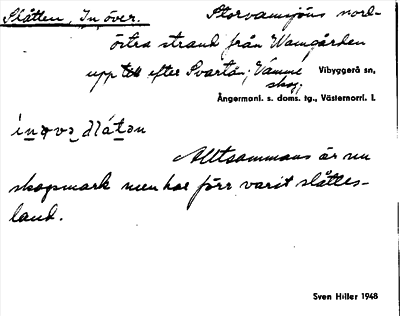 Slåtten, In över. Storvamsjöns nord-
östra strand från Wamgården
upp till efter Svartån; Vämne Vibyggerå sn,
skog;
Ångermanl. s. doms. tg., Västernorrl. l.
ínǝvǝ slátǝn
Alltsammans är nu
skogsmark men har förr varit slåttes-
land.
Sven Hiller 1948